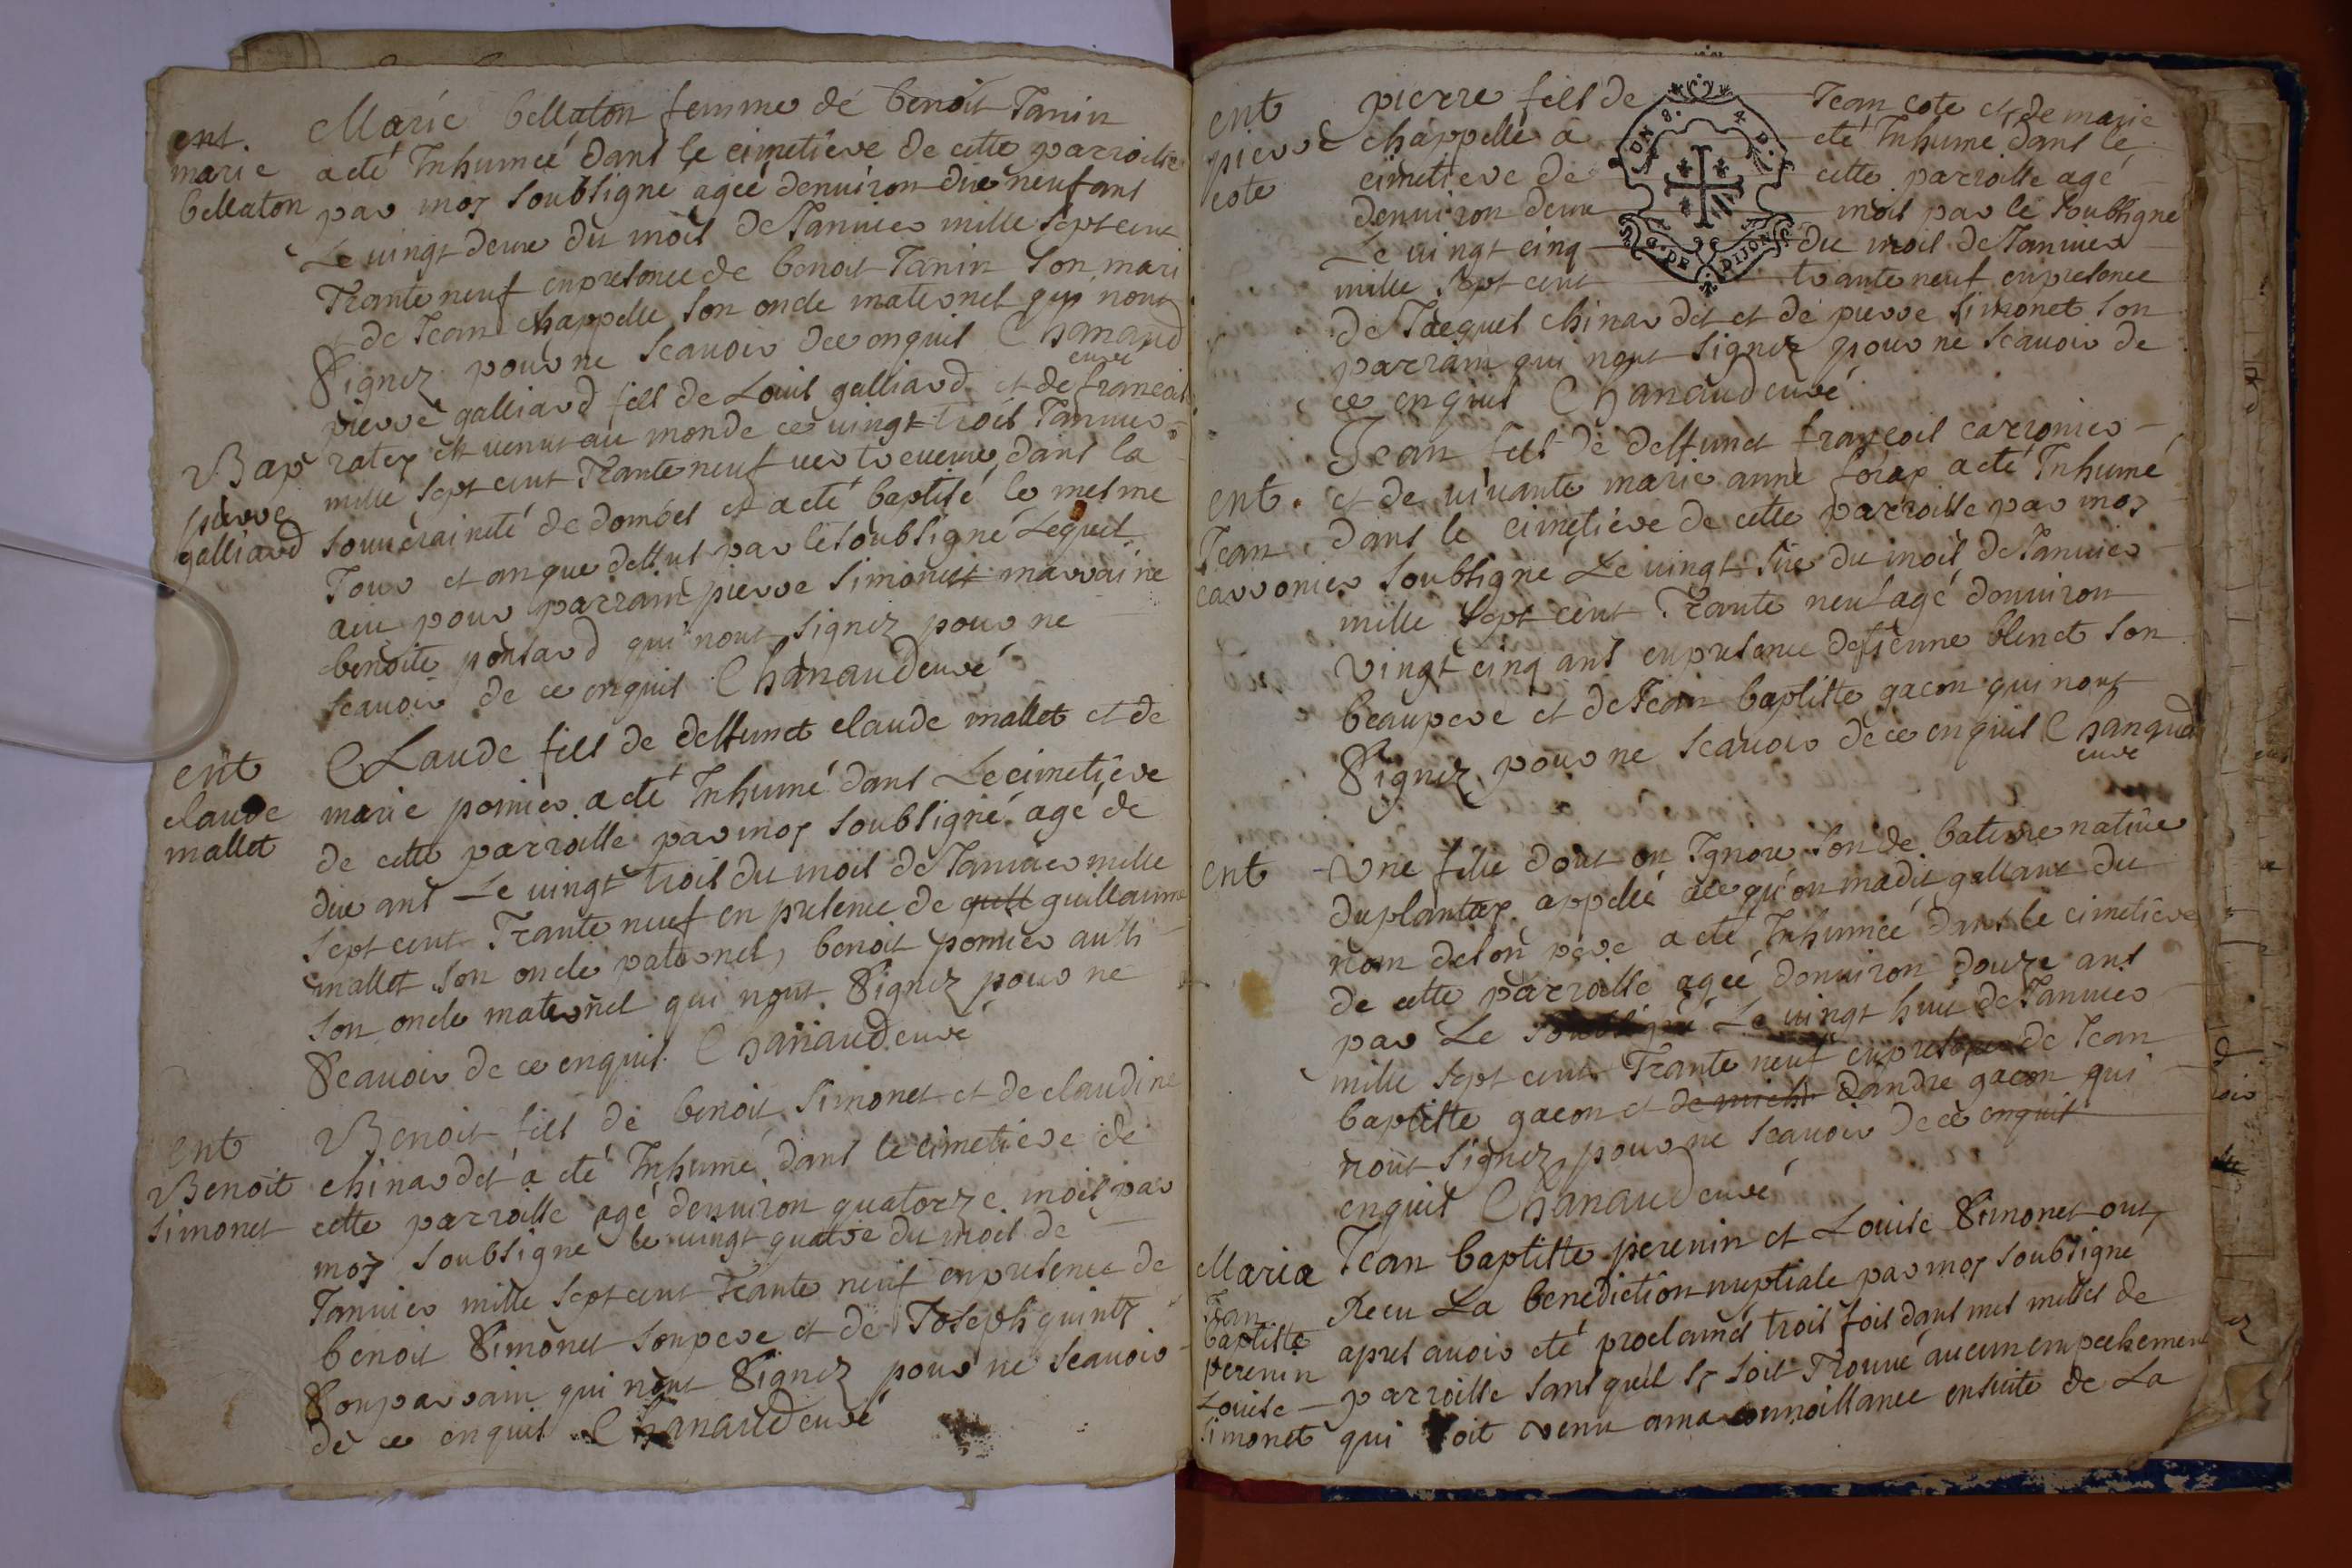 ent.
marie
bellaton
Marie bellaton femme de benoit Janin
a eté Inhumeé dans le cimetiere de cette parroisse
par moy soubsigne ageé denuiron dixneuf ans
Le uingt deux du mois de Januier mille sept cent
Trante neuf en presence de benoit Janin son mari
et de Jean chappelle son oncle maternel qui nont
Signez pour ne scauoir de ce enquis Chanaud
curé
Bap
pierre
galliard
pierre galliard fils de Louis galliard et de francois
ratey est uenut au monde ce uingt trois Januier
mille sept cent Trante neuf uers treueux dans la
souueraineté de dombes et a eté baptisé le mesme
Jour et an que dessus par le soubsigné Lequel
a eu pour parrain pierre Simonet marraine
benoite ponsard qui nont signez pour ne
scauoir de ce enquis Chanaud curé
ent
claude
mallet
CLaude fils de deffunct claude mallet et de
marie pomier a eté Inhumé dans Le cimetiere
de cette parroisse par moy soubsigné agé de
dix ans Le uingt trois du mois de Januier mille
sept cent Trante neuf en presence de guill guillaume
mallet son oncle paternel, benoit pomier aussi
son oncle maternel qui nont Signez pour ne
Scauoir de ce enquis Chanaud curé
ent
Benoit
simonet
Benoit fils de benoit simonet et de claudine
chinardet a eté Inhumé dans le cimetiere de
cette parroisse agé denuiron quatorze mois par
moy soubsigne le uingt quatre du mois de
Januier mille sept cent Trante neuf en presence de
benoit Simonet son pere et de Joseph guinty
Son parrain qui nont Signez pour ne scauoir
de ce enquis Chanaud curé
ent
pierre
cote
pierre fils de Jean cote et de marie
chappelle a eté Inhumé dans le
cimetiere de cette parroisse agé
denuiron deux mois par le soubsigne
Le uingt cinq du mois de Januier
mille sept cent trante neuf en presence
de Jacques chinardet et de pierre simonet son
parrain qui nont signez pour ne scauoir de
ce enquis Chanaud curé
DE DIJON
ent.
Jean
carronier
Jean fils de deffunct françois carronier
et de uiuante marie anne forax a eté Inhumé
dans le cimetiere de cette parroisse par moy
soubsigne Le uingt six du mois de Januier
mille sept cent Trante neuf agé denuiron
vingt cinq ans en presence destienne blenct son
beaupere et de Jean baptiste gacon qui nont
Signez pour ne scauoir de ce enquis Chanaud
curé
ent
Vne fille dont on Ignore son de bateme natiue
duplantay appellé a ce qu'on ma dit gallant du
nom de son pere a eté Inhumeé dans le cimetiere
de cette parroisse ageé denuiron douze ans
par Le soubsigné Le uingt huit de Januier
mille sept cent Trante neuf en presence de Jean
baptiste gacon et de miche dandré gacon qui
nont signez pour ne scauoir de ce enquis
enquis Chanaud curé
Maria
Jean
baptiste
perenin
Louise
simonet
Jean baptiste perenin et Louise Simonet ont
Recu La benediction nuptiale par moy soubsigné
apres auoir eté proclamés trois fois dans mes messes de
parroisse sans quil sy soit Trouué aucun empechement
qui soit venu a ma connoissance ensuite de La